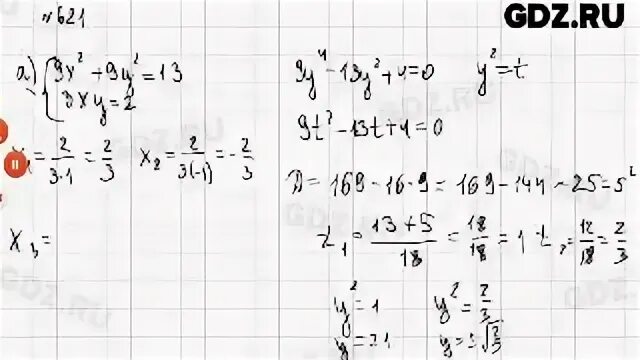 №621
GDZ.RU
а) { 9x² + 9y² = 13
3xy = 2
= 2/(3·1) = 2/3   x₂ = 2/(3(-1)) = -2/3
x₃ =
9y⁴ - 13y² + 4 = 0   y² = t
9t² - 13t + 4 = 0
D = 169 - 16·9 = 169 - 144 - 25 = 5²
t₁ = (13+5)/18 = 18/18 = 1   t₂ = 12/18 = 2/3
y² = 1   y² = 2/3
y = ±1   y = ±√(2/3)